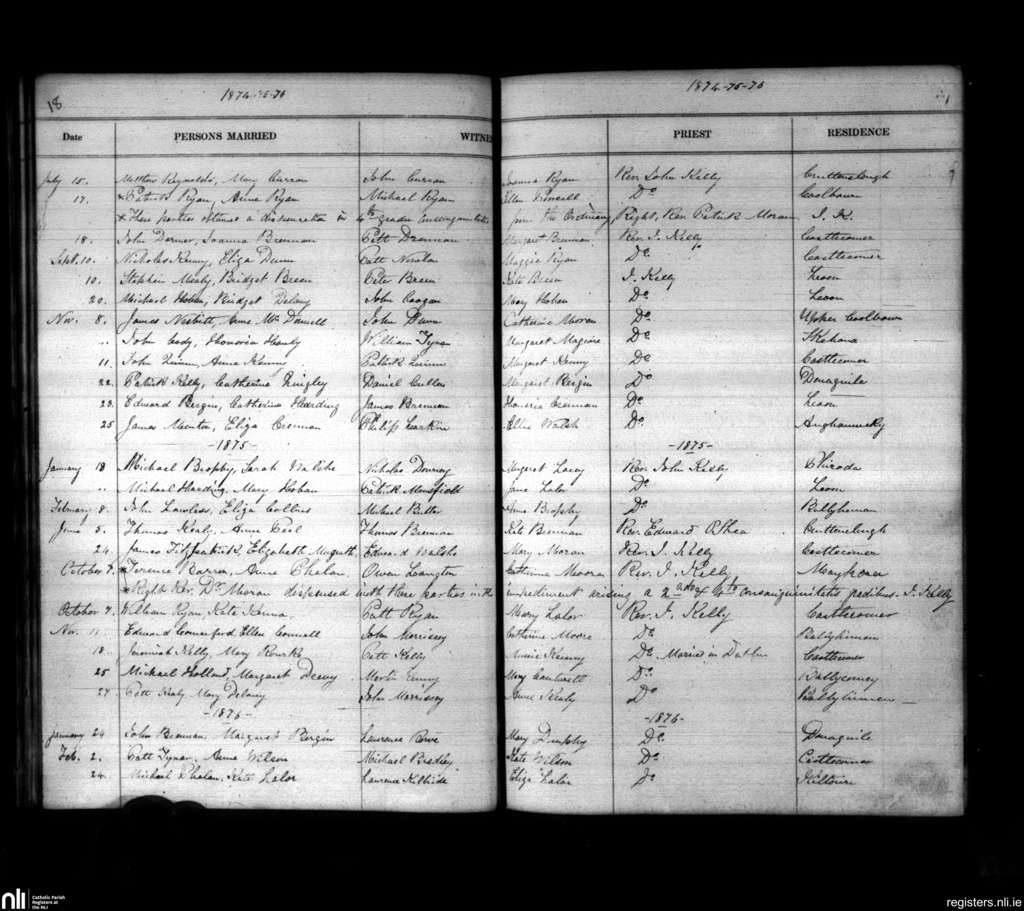 18 1874-75-76 1874-75-76
Date PERSONS MARRIED WITNE PRIEST RESIDENCE
July 15. Matthew Reynolds, Mary Curran John Curran Joanna Ryan Rev. John Kelly Cruttenclough
17. * Patrick Ryan, Anne Ryan Michael Ryan Ellen Do. Coolbawn
* These parties obtained a dispensation in 4th grade Consanguinitatis from the Ordinary, Right Rev. Patrick Moran, J. K.
18. John Dormer, Joanna Brennan Patt Drennan Margaret Brennan Rev. J. Kelly Castlecomer
Sept. 10. Nicholas Kenny, Eliza Dunn Patt Nowlan Maggie Ryan Do. Castlecomer
10. Stephen Mealy, Bridget Breen Pete Breen Kate Breen J. Kelly
20. Michael Hoban, Bridget Delany John Coogan Mary Hoban Do.
Nov. 8. James Nesbitt, Anne Mc Daniell John Dunn Catherine Moran Do. Upper Coolbawn
" John Cody, Honoria Healy William Tynan Margaret Maguire Do. Skehana
11. John Quinn, Anne Kenny Patrick Margaret Kenny Do. Castlecomer
22. Patrick Kelly, Catherine Daniel Cullen Margaret Bergin Do. Donaguile
23. Edward Bergin, Catherine Harding James Brennan Honoria Brennan Do.
25 James Eliza Brennan Philip Larkin Ellen Walsh Do.
-1875- -1875-
January 18 Michael Brophy, Sarah Nicholas Downey Margaret Lacey Rev. John Kelly Chiroda
" Michael Harding, Mary Hoban Patrick Mansfield Jane Lalor Do.
February 8. John Lawless, Eliza Collins Michael Butler Anne Brophy Do. Ballyhemon
June 5. Thomas Healy, Anne Thomas Brennan Kate Brennan Rev. Edward O'Shea Cruttenclough
24. James Fitzpatrick, Elizabeth Edward Walshe Mary Moran Rev. J. Kelly Castlecomer
October 7. * Terence Barron, Anne Phelan Owen Catherine Moore Rev. J. Kelly
* Right Rev. Dr. Moran dispensed with these parties in the impediment arising a 2 ad 4th consanguinitatis gradibus. J. Kelly
October 7. William Ryan, Kate Patt Ryan Mary Lalor Rev. J. Kelly Castlecomer
Nov. 11. Edward Comerford, Ellen Connell John Morrissey Catherine Moore Do.
18. Jeremiah Kelly, Mary Rourke Patt Kelly Annie Kenny Do. Married in Dublin Castlecomer
25 Michael Holland, Margaret Martin Mary Cantwell Do. Ballycomey
27 Patt Healy, Mary Delany John Morrissey Anne Healy Do
-1876- -1876-
January 24 John Brennan, Margaret Bergin Laurence Mary Dunphy Do. Donaguile
Feb. 2. Patt Tynan, Anne Wilson Michael Bradley Kate Wilson Do. Castlecomer
24. Michael Phelan, Kate Lalor Laurence Kilbride Eliza Lalor Do
nli Catholic Parish Registers at the NLI
registers.nli.ie